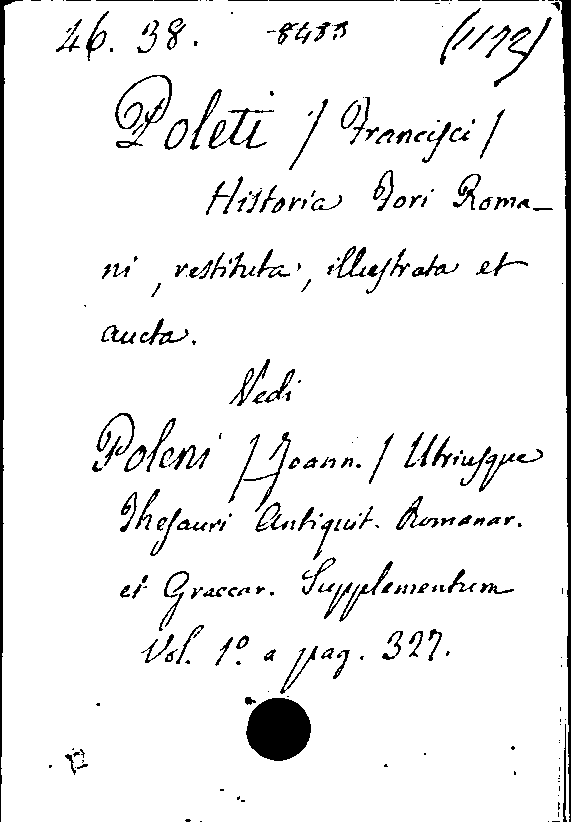 46. 38. 8483
Poleti / Francisci /
Historia Fori Roma-
ni, restituta, illustrata et
aucta.
Vedi
Poleni / Joann. / Utriusque
Thesauri Antiquit. Romanar.
et Graecar. Supplementum
Vol. 1º. a pag. 327.